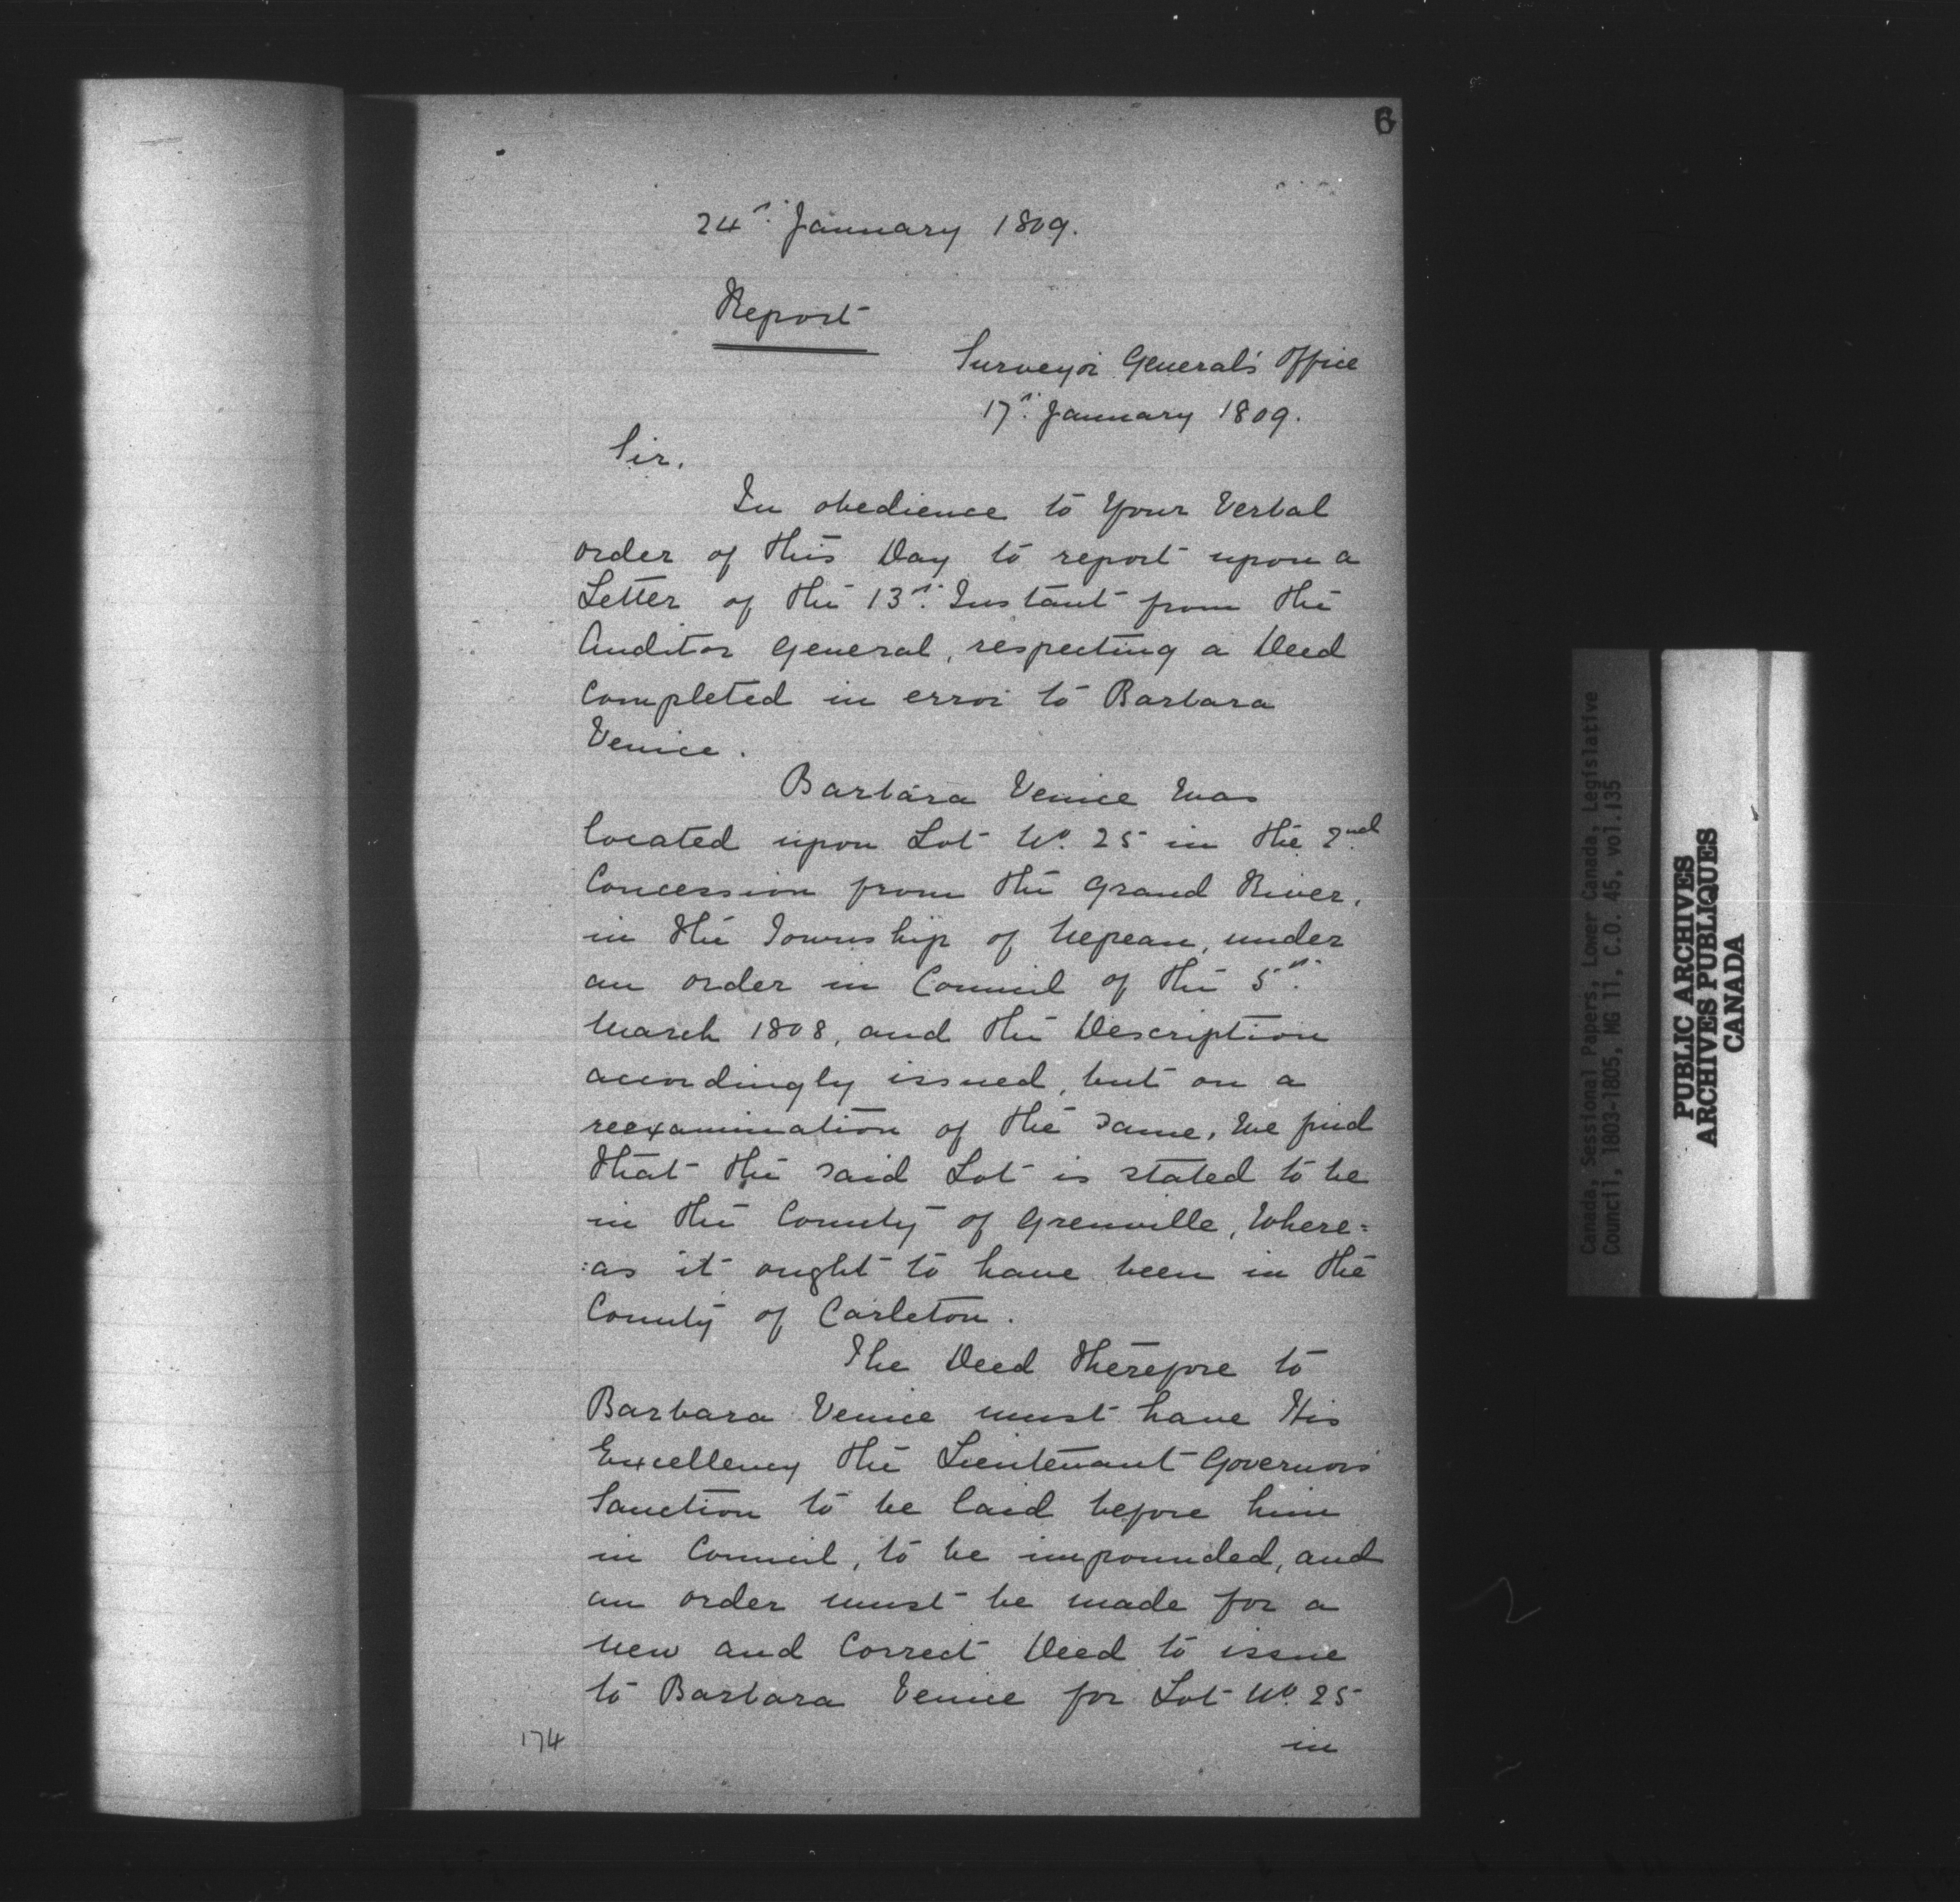 6
24th January 1809.
Report
Surveyor General's Office
17th January 1809.
Sir,
In obedience to Your Verbal
order of this Day to report upon a
Letter of the 13th Instant from the
Auditor General, respecting a Deed
Completed in error to Barbara
Venice.
Barbara Venice was
located upon Lot No. 25 in the 2nd
Concession from the Grand River,
in the Township of Nepean, under
an order in Council of the 5th
March 1808, and the Description
accordingly issued, but on a
reexamination of the same, We find
that the said Lot is stated to be
in the County of Grenville, Where=
:as it ought to have been in the
County of Carleton.
The Deed therefore to
Barbara Venice must have His
Excellency the Lieutenant Governors
Sanction to be laid before him
in Council, to be impounded, and
an order must be made for a
New and Correct Deed to issue
to Barbara Venice for Lot No. 25
in
174
Canada, Sessional Papers, Lower Canada, Legislative
Council, 1803-1805, MG 11, C.O. 45, vol.135
PUBLIC ARCHIVES
ARCHIVES PUBLIQUES
CANADA